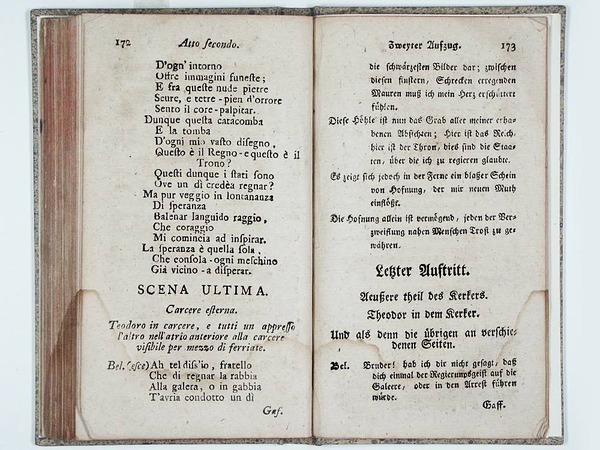 172 Atto secondo.
D'ogn' intorno
Offre immagini funeste;
E fra queste nude pietre
Scure, e tetre-pien d'orrore
Sento il core-palpitar.
Dunque questa catacomba
E la tomba
D'ogni mio vasto disegno,
Questo è il Regno-e questo è il
Trono?
Questi dunque i stati sono
Ove un dì credèa regnar?
Ma pur veggio in lontananza
Di speranza
Balenar languido raggio,
Che coraggio
Mi comincia ad inspirar.
La speranza è quella sola,
Che consola-ogni meschino
Già vicino-a disperar.
SCENA ULTIMA.
Carcere esterna.
Teodoro in carcere, e tutti un appresso
l'altro nell'atrio anteriore alla carcere
visibile per mezzo di ferriate.
Bel. (esce) Ah tel diss'io, fratello
Che di regnar la rabbia
Alla galera, o in gabbia
T'avria condotto un dì
Gaf.
Zweyter Aufzug. 173
die schwärzesten Bilder dar; zwischen
diesen finstern, Schrecken erregenden
Mauren muß ich mein Herz erschüttert
fühlen.
Diese Höhle ist nun das Grab aller meiner erha-
benen Absichten; Hier ist das Reich,
hier ist der Thron, dies sind die Staa-
ten, über die ich zu regieren glaubte.
Es zeigt sich jedoch in der Ferne ein blaßer Schein
von Hofnung, der mir neuen Muth
einflößt.
Die Hofnung allein ist vermögend, jeden der Ver-
zweiflung nahen Menschen Trost zu ge-
währen.
Letzter Auftritt.
Aeußere theil des Kerkers.
Theodor in dem Kerker.
Und als denn die übrigen an verschie-
denen Seiten.
Bel. Bruder! hab ich dir nicht gesagt, daß
dich einmal der Regierungsgeist auf die
Galeere, oder in den Arrest führen
würde.
Gaff.